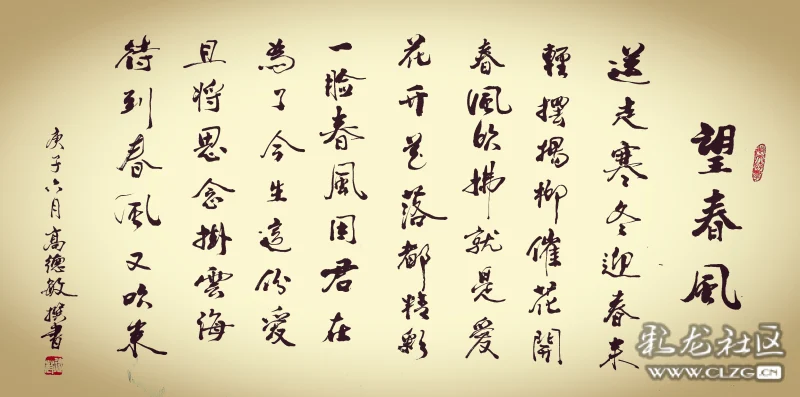 望春风
送走寒冬迎春来
輕擺搗柳催花開
春風吹拂就是愛
花开花落都精彩
一脸春風因君在
為了今生這份愛
且将思念掛雲海
待到春風又吹来
庚子六月高德敏撰書
彩龙社区
WWW.CLZG.CN